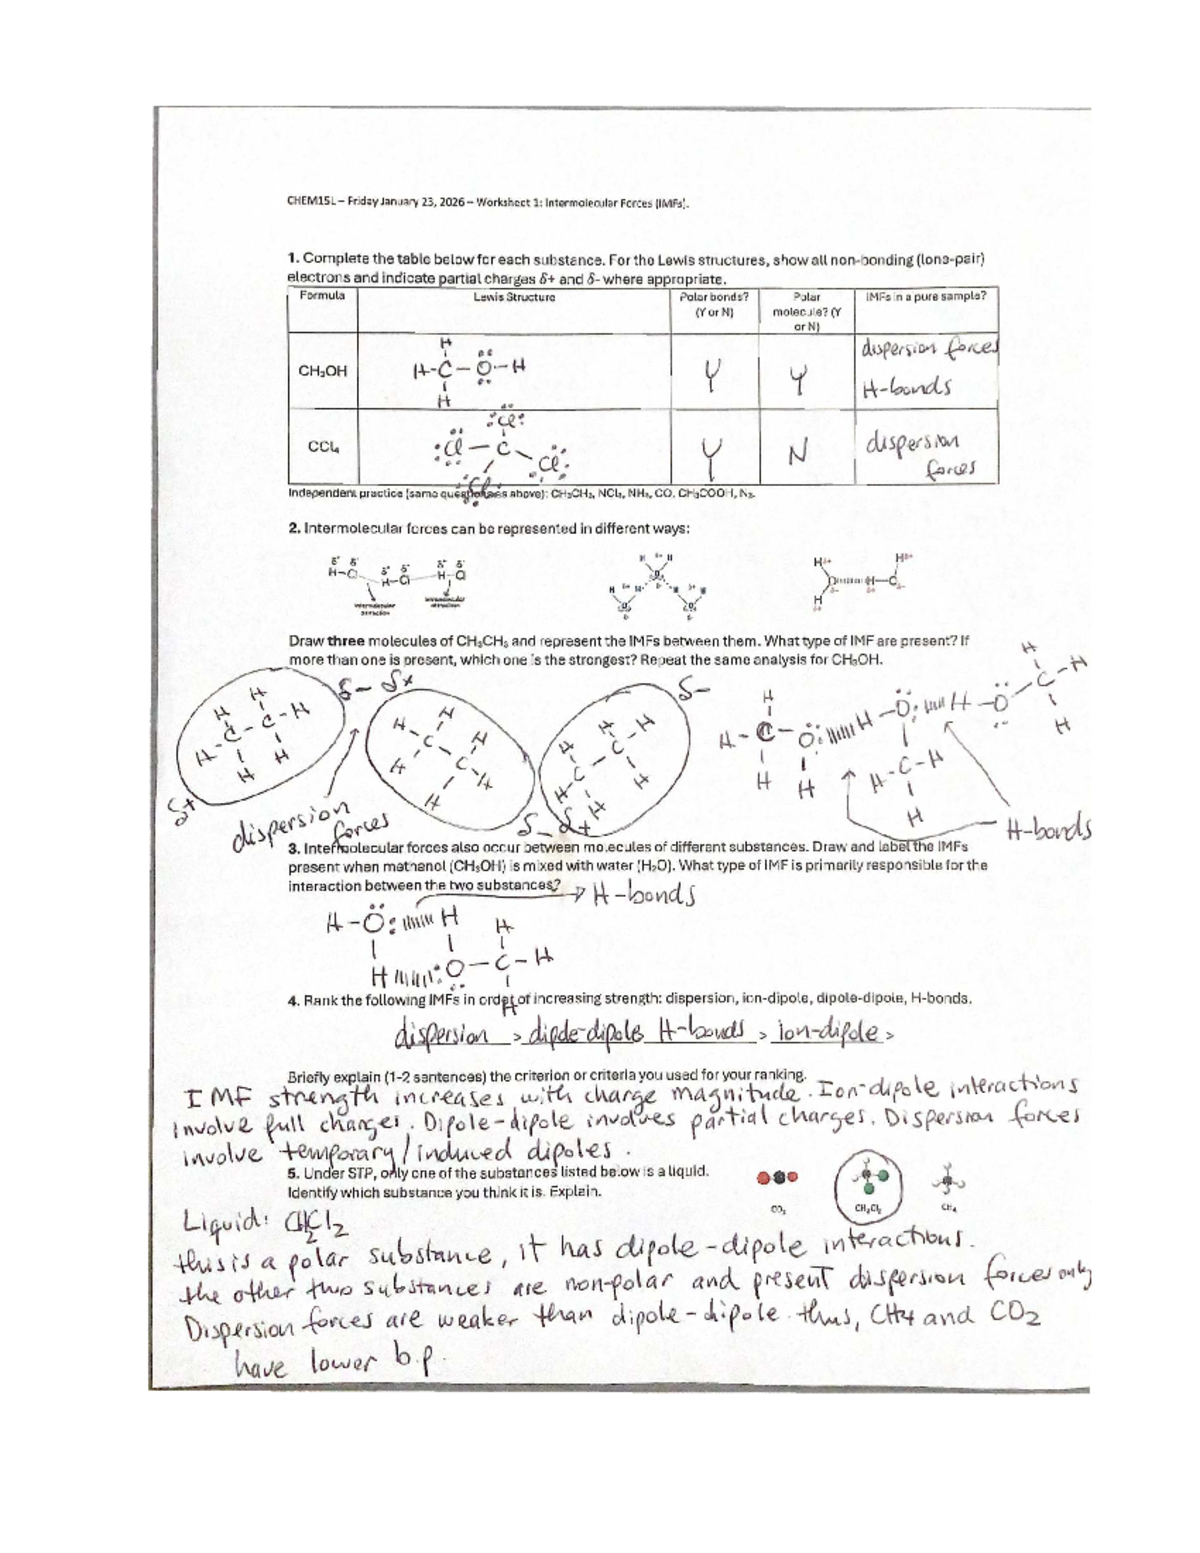 CHEM15L – Friday January 23, 2026 – Worksheet 1: Intermolecular Forces (IMFs).
1. Complete the table below for each substance. For the Lewis structures, show all non-bonding (lone-pair)
electrons and indicate partial charges δ+ and δ- where appropriate.
Formula Lewis Structure Polar bonds? (Y or N) Polar molecule? (Y or N) IMFs in a pure sample?
CH₃OH Y Y dispersion forces H-bonds
H
H-C-O-H
H
CCl₄ Y N dispersion forces
Cl
Cl-C-Cl
Cl
Independent practice (same questions as above): CH₃CH₃, NCl₃, NH₃, CO, CH₃COOH, N₂.
2. Intermolecular forces can be represented in different ways:
δ+ δ- δ+ δ- δ+ δ-
H-Cl H-Cl H-Cl
Draw three molecules of CH₃CH₃ and represent the IMFs between them. What type of IMF are present? If
more than one is present, which one is the strongest? Repeat the same analysis for CH₃OH.
δ- δ+ δ-
δ+ dispersion forces δ- δ+ H-bonds
3. Intermolecular forces also occur between molecules of different substances. Draw and label the IMFs
present when methanol (CH₃OH) is mixed with water (H₂O). What type of IMF is primarily responsible for the
interaction between the two substances? → H-bonds
H-O: H H
H :O-C-H
H
4. Rank the following IMFs in order of increasing strength: dispersion, ion-dipole, dipole-dipole, H-bonds.
dispersion > dipole-dipole H-bonds > ion-dipole >
Briefly explain (1-2 sentences) the criterion or criteria you used for your ranking.
IMF strength increases with charge magnitude. Ion-dipole interactions
involve full charges. Dipole-dipole involves partial charges. Dispersion forces
involve temporary/induced dipoles.
5. Under STP, only one of the substances listed below is a liquid.
Identify which substance you think it is. Explain.
CO₂ CH₂Cl₂ CH₄
Liquid: CH₂Cl₂
this is a polar substance, it has dipole-dipole interactions.
the other two substances are non-polar and present dispersion forces only
Dispersion forces are weaker than dipole-dipole. thus, CH4 and CO2
have lower b.p.